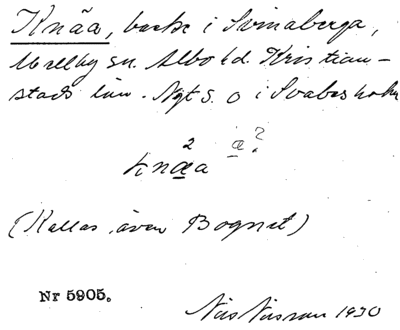 Knäa, backe i Svinaberga,
Mellby sn. Albo hd. Kristian-
stads län. Ngt s. o i Svabeshohn
2 æ?
knæa
(Kallas även Bognet)
Nr 5905.
1930